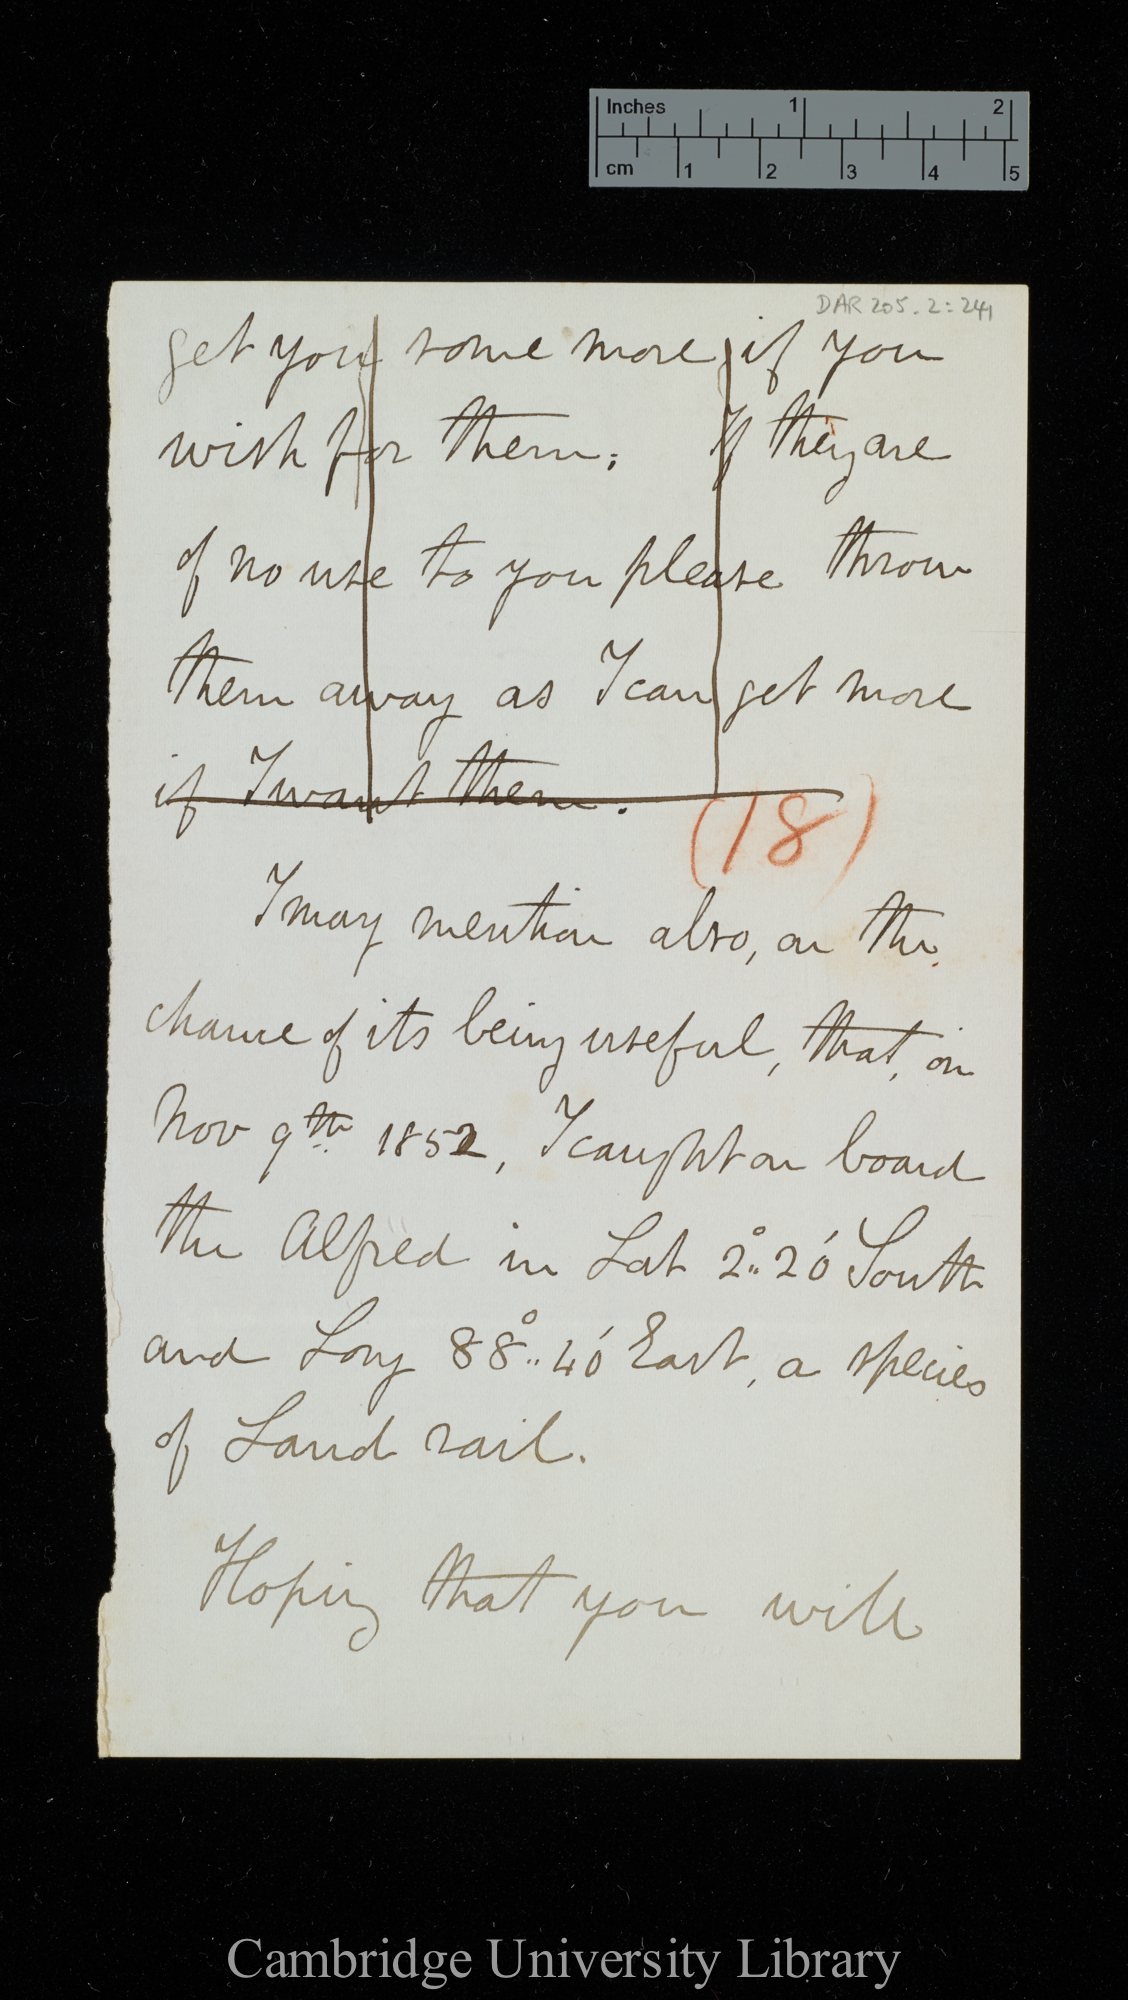 Inches 1 2
cm 1 2 3 4 5
DAR 205.2:241
get you some more if you
wish for them; If they are
of no use to you please throw
them away as I can get more
if I want them.
(18)
I may mention also, on the
chance of its being useful, that, on
Nov 9th 1852, I caught on board
the Alfred in Lat 2°..20' South
and Long 88°..40' East, a species
of Land rail.
Hoping that you will
Cambridge University Library